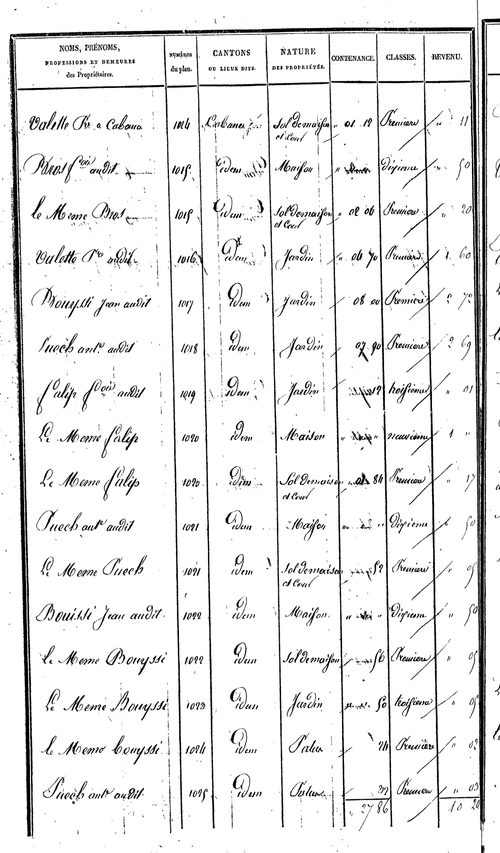 NOMS, PRÉNOMS, PROFESSIONS ET DEMEURES des Propriétaires. NUMÉROS du plan. CANTONS OU LIEUX DITS. NATURE DES PROPRIÉTÉS. CONTENANCE. CLASSES. REVENU.
Valette Pre a Cabana 1014 Cabana Sol de maison et Cour " 01 12 Premiere " 11
Bros fcois audit 1015 idem Maison " dixieme " 50
le Meme Bros 1015 idem Sol de maison et Cour " 02 06 Premiere " 20
Valette Pre audit 1016 idem Jardin " 04 70 Premiere 1 60
Bouyssi Jean audit 1017 idem Jardin 08 00 Premiere 2 72
Puech ant. audit 1018 idem Jardin 07 90 Premiere 2 69
falip fcois audit 1019 idem Jardin 12 troisieme " 01
Le Meme falip 1020 idem Maison " neuvieme 1 "
Le Meme falip 1020 idem Sol de maison et Cour 84 Premiere " 17
Puech ant. audit 1021 idem Maison " Dixieme " 50
Le Meme Puech 1021 idem Sol de maison et Cour 52 Premiere " 05
Bouissi Jean audit 1022 idem Maison " Dixieme " 50
le Meme Bouyssi 1022 idem Sol de maison 56 Premiere " 05
Le Meme Bouyssi 1023 idem Jardin 50 troisieme " 05
le Meme Bouyssi 1024 idem Patus 24 Premiere " 02
Puech ant. audit 1025 idem Patus 32 Premiere " 03
27 86 10 20